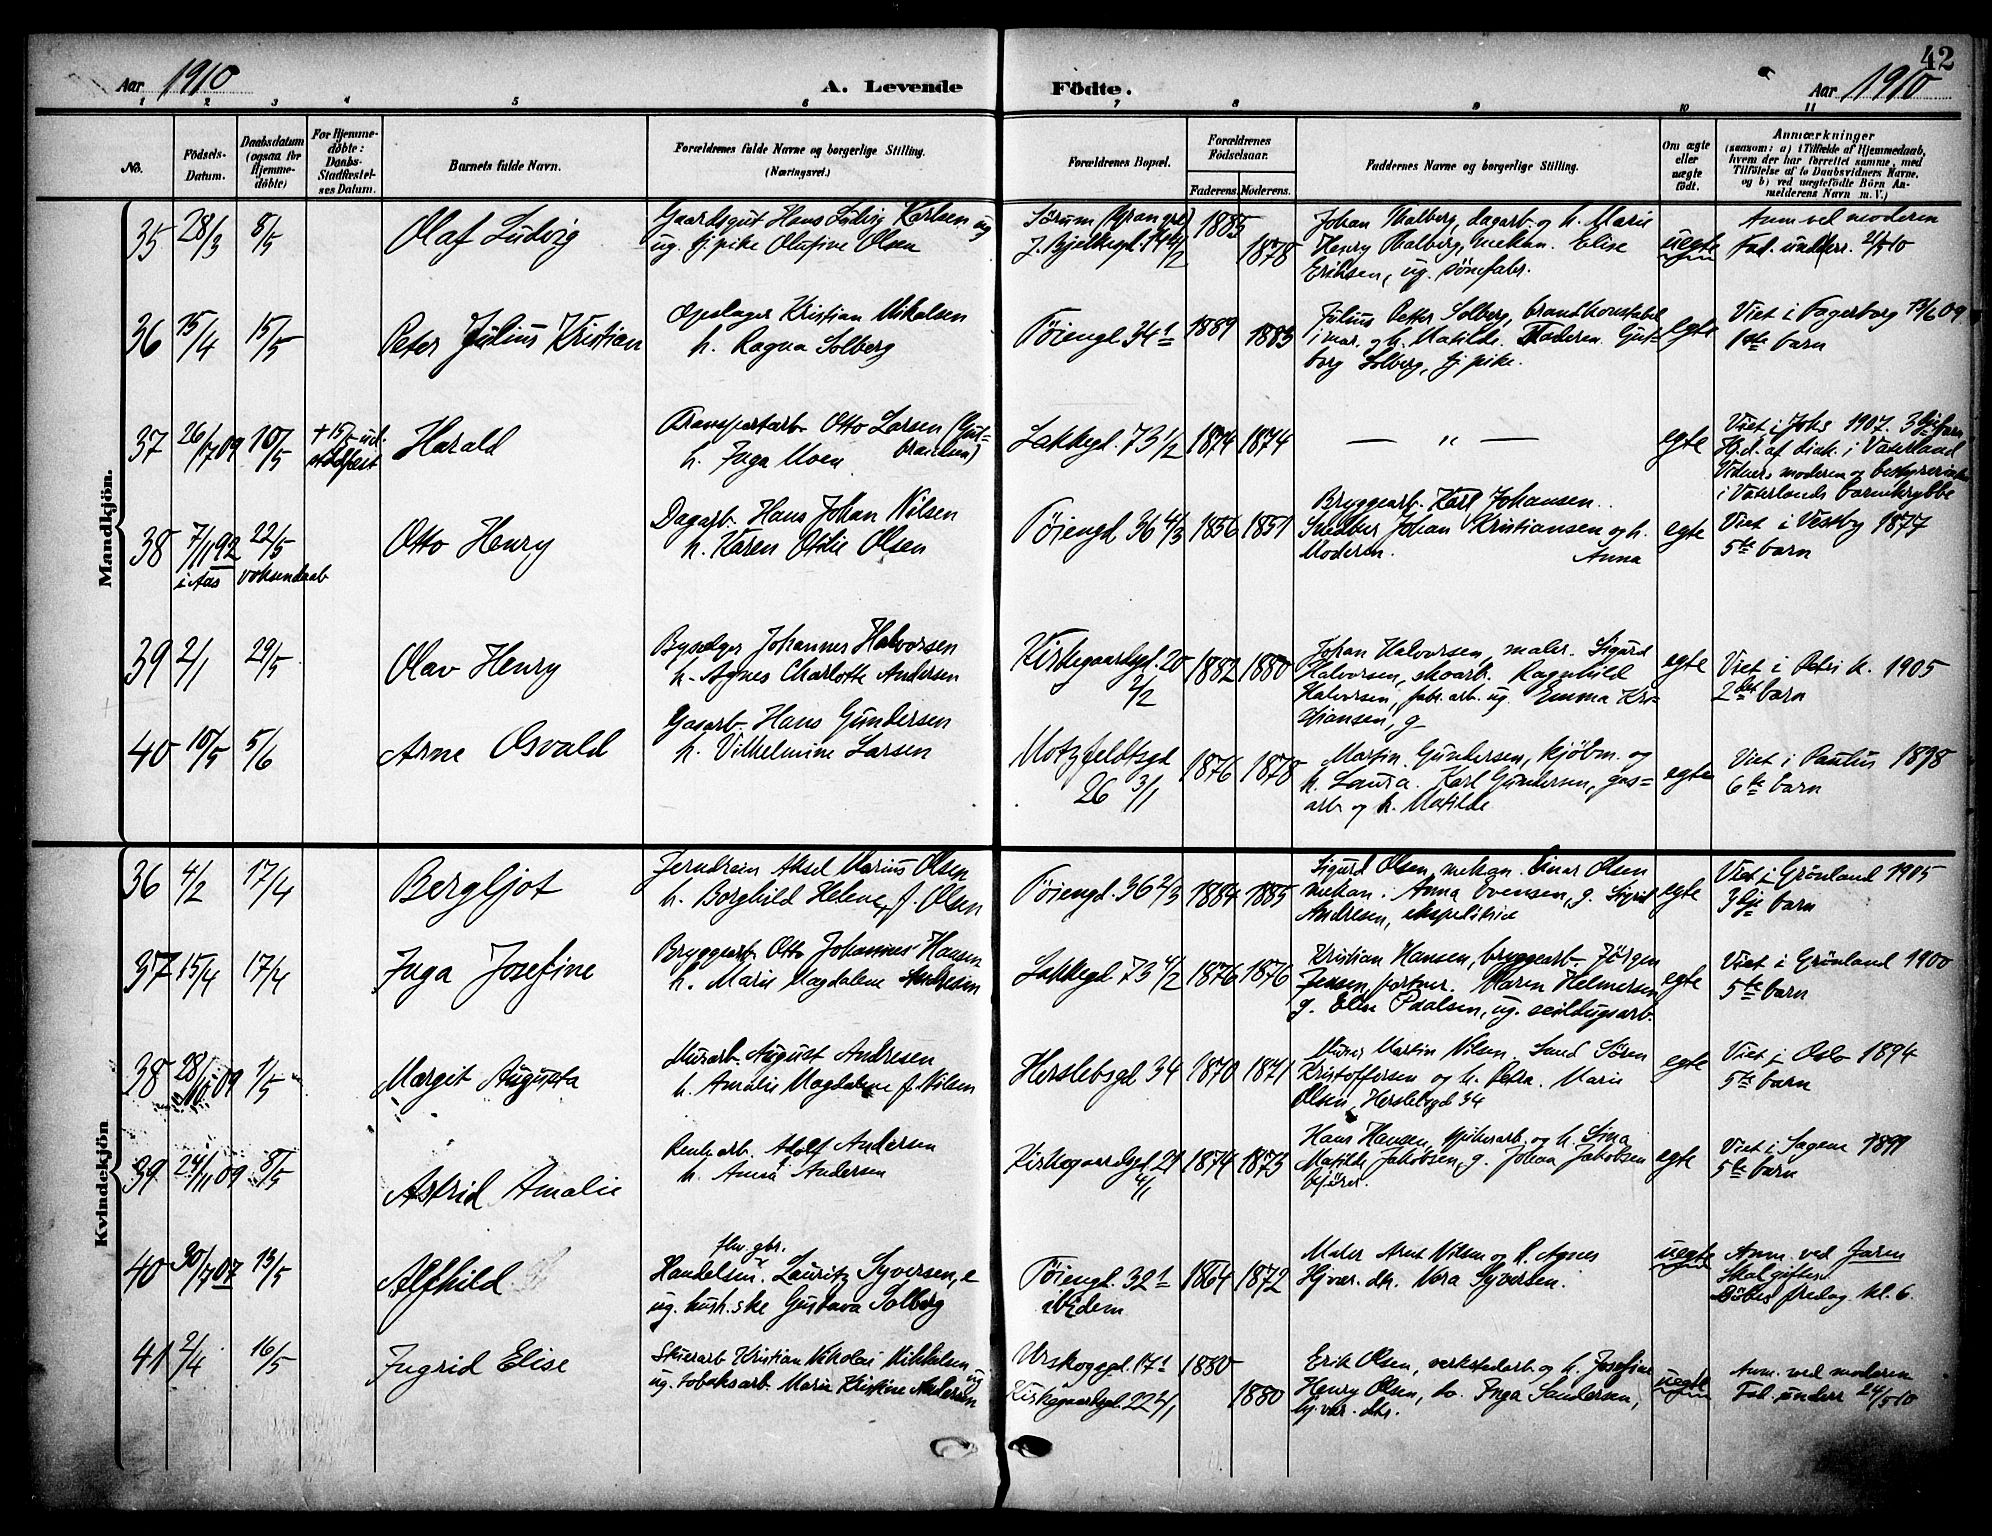 42
Aar 1910
A. Levende
Födte.
Aar 1910
1 2 3 4 5 6 7 8 9 10 11
No.
Födsels-
Datum.
Daabsdatum
(ogsaa for
Hjemme-
döbte)
For Hjemme-
döbte:
Daabs-
Stadfæstel-
ses Datum.
Barnets fulde Navn.
Forældrenes fulde Navne og borgerlige Stilling.
(Næringsvei.)
Forældrenes Bopæl.
Forældrenes
Födselsaar.
Faderens. Moderens.
Faddernes Navne og borgerlige Stilling.
Om ægte
eller
uægte
födt.
Anmærkninger
(saasom: a) i Tilfælde af Hjemmedaab,
hvem der har forrettet samme, med
Tilföielse af to Daabsvidners Navne.
og b) ved uægtefödte Börn An-
melderens Navn m. V.)
Mandkjön.
35 28/3 8/5
Olaf Ludvig
Gaardsgut Hans Ludvig Karlsen og
ug. tj.pike Olufine Olsen
Sörum
J. Bjelkesgd.
1885
1878
Johan Thalberg, dagarb. og h. Marie
Henry Thalberg, mekan. Elise
Eriksen, ug.
uegte
Anm ved moderen
Fad. underr.
36 15/4 15/5
Peter Julius Kristian
Opslager Kristian Mikalsen
h. Ragna Solberg
Töiengd. 34 1
1889
1883
Julius Petter Solberg, brandkonstabel
og h. Matilde. Faderen. Gud-
borg Solberg, tj.pike.
egte
Viet i Fagerborg
1ste barn
37 26/7 09 10/5
Harald
Transportarb. Otto Larsen
h. Inga Moen
Lakkegd. 73 1/2
1874 1874
— „ —
egte
Viet i Johs 1907. 3dje barn
Hj.d. af diak. i Vaterland
Vidner: moderen og
i Vaterlands barnekrybbe
38 7/11 92 22/5
i Aas voksendaab
Otto Henry
Dagarb. Hans Johan Nilsen
h. Karen Otilie Olsen
Töiengd 36 4/3
1856 1851
Bryggearb. Karl Johansen.
Johan Kristiansen og h.
Moderen. Anna
egte
Viet i Vestby 1877
5te barn
39 2/1 29/5
Olav Henry
Johannes Halvorsen
h. Agnes Charlotte Andersen
Kirkegaardsgd. 20
2/2
1882 1880
Johan Halvorsen, maler. Sigurd
Halvorsen, skoarb. Ragnhild
Halvorsen, fabr.arb. ug. Emma Kri-
stiansen, g
egte
Viet i Petri k. 1905
2det barn
40 10/5 5/6
Arne Osvald
Gasarb. Hans Gundersen
h. Vilhelmine Larsen
Motzfeldtsgd
26 3/1
1876 1878
Martin Gundersen, kjöbm. og
h. Laura. Karl Gundersen, gas-
arb og h. Matilde
egte
Viet i Paulus 1898
6te barn
Kvindekjön
36 4/2 17/4
Bergljot
Jerndreier Aksel Marius Olsen
h. Borghild Helene f. Olsen
Töiengd. 36 2/3
1884 1885
Sigurd Olsen, mekan. Einar Olsen
mekan. Anna Evensen, g. Sigrid
Andresen, ekspeditrice
egte
Viet i Grönland 1905
3dje barn
37 15/4 17/4
Inga Josefine
Bryggearb Otto Johannes Hansen
h. Marie Magdalene Andresen
Lakkegd. 73 4/2
1876 1876
Kristian Hansen, bryggearb. Jörgen
Jensen, portner. Maren Helmersen
g. Elise Paalsen, ug. seildugsarb.
egte
Viet i Grönland 1900
5te barn
38 28/10 09 1/5
Margit Augusta
Murarb. August Andresen
h. Amalie Magdalene f. Nilsen
Herslebsgd 34
1870 1871
Murer Martin Nilsen. Sören
Kristoffersen og h. Petra. Marie
Olsen, Herslebsgd 34
egte
Viet i Oslo 1894
5te barn
39 24/11 09 8/5
Astrid Amalie
Renh.arb. Adolf Andersen
h. Anna Andersen
Kirkegaardsgd 21
4/1
1874 1875
Hans Hansen, og h. Lina
Matilde Jakobsen, g. Johan Jakobsen
egte
Viet i Sagene 1899
5te barn
40 30/7 07 13/5
Alfhild
fhv. gbr.
Handelsm. Lauritz Syversen, e
ug. hush.ske Gustava Solberg
Töiengd. 32 1
ibidem
1864 1872
Maler Arnt Nilsen og h. Agnes
Hjvær. dtr. Nora Syversen.
uegte
Anm. ved Faren
Skal giftes.
Döbes fredag kl. 6.
41 2/4 16/5
Ingrid Elise
Kristian Nikolai Mikkelsen og
ug. tobaksarb. Marie Kristine Andersen
Urskoggd. 17 1
Kirkegaardsgd. 22 2/1
1880
1880
Erik Olsen, verkstedarb og h. Josefine
Henry Olsen, do. Inga Sandersen,
hj.vær. dtr.
uegte
Anm. ved moderen
Fad. underr 24/5 10